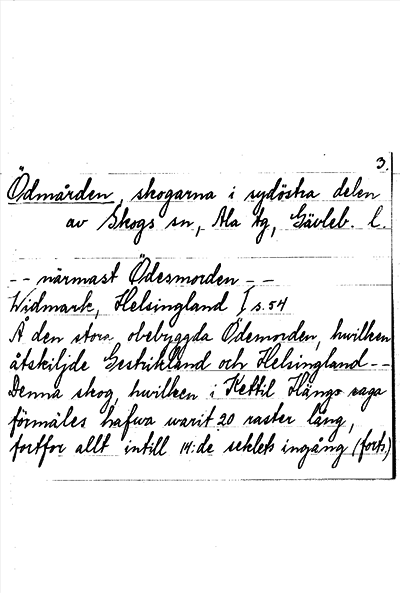 3.
Ödmården, skogarna i sydöstra delen
av Skogs sn, Ala tg, Gävleb. l.
-- närmast Ödesmorden --
Widmark, Helsingland I s. 54
Å den stora obebyggda Ödemorden, hwilken
åtskiljde Gestrikland och Helsingland --
Denna skog, hwilken i Kettil Hängs saga
förmäles hafwa warit 20 raster lång,
fortfor allt intill 14:de seklets ingång (forts)